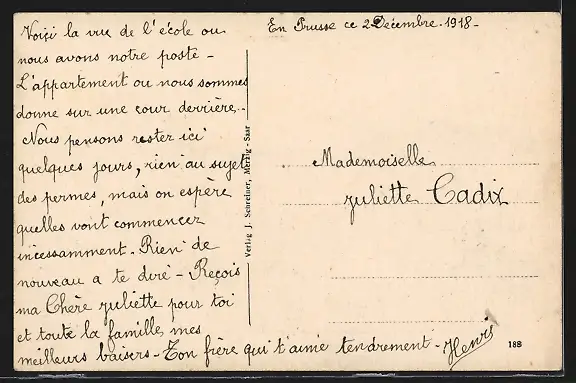 En Prusse ce 2 Décembre. 1918-
Voiçi la vue de l'école ou
nous avons notre poste-
L'appartement ou nous sommes
donne sur une cour derrière..
Nous pensons rester ici
quelques jours, rien au sujet
des permes, mais on espère
quelles vont commencer
incessamment- Rien de
nouveau a te dire- Reçois
ma Chère juliette pour toi
et toute la famille, mes
meilleurs baisers- Ton frère qui t'aime tendrement- Henri
Verlag J. Schreiner, Merzig-Saar
Mademoiselle
juliette Cadix
188